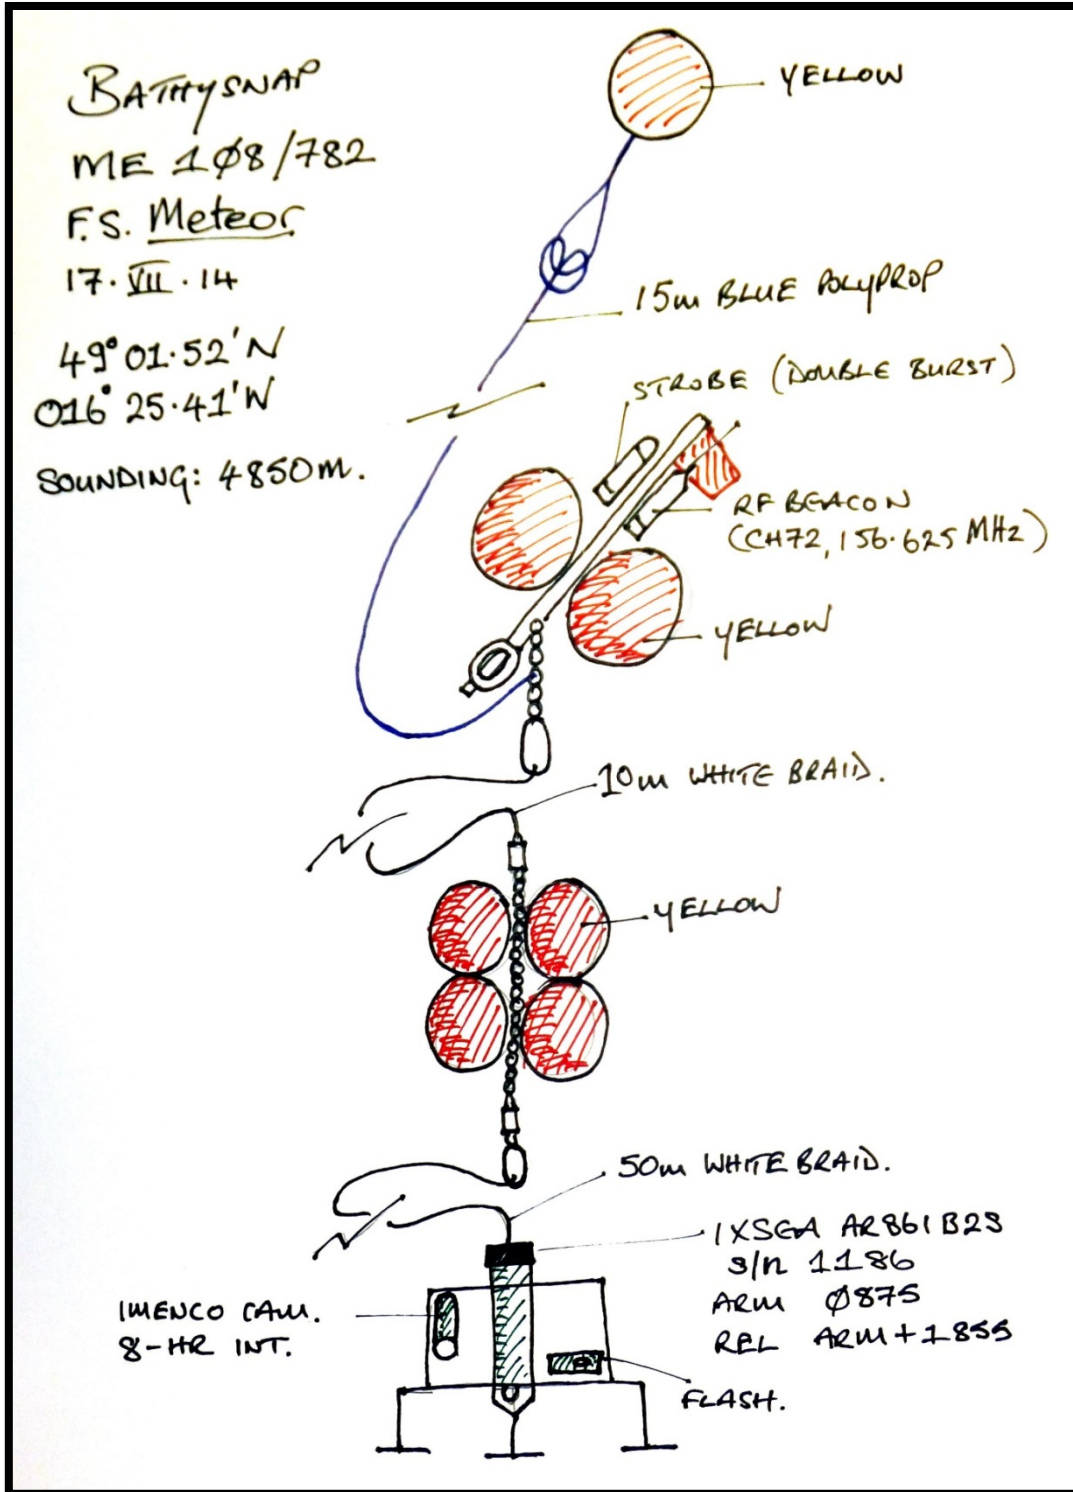 BATHYSNAP
ME 1Ø8/782
F.S. Meteor
17.VII.14
49° 01.52'N
016° 25.41'W
SOUNDING: 4850m.
YELLOW
15m BLUE POLYPROP
STROBE (DOUBLE BURST)
RF BEACON
(CH72, 156.625 MHz)
YELLOW
10m WHITE BRAID.
YELLOW
50m WHITE BRAID.
IXSEA AR861B2S
s/n 1186
ARM Ø875
REL ARM+1855
IMENCO CAM.
8-HR INT.
FLASH.